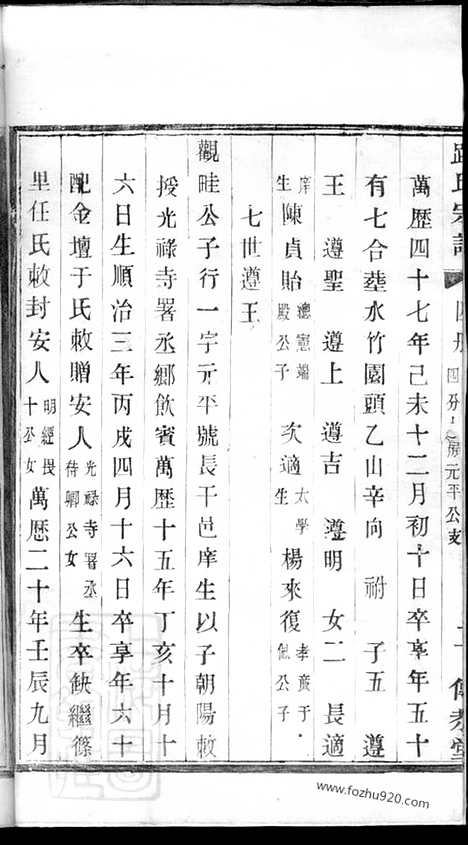 氏宗譜 四册 四分 房元平公支 二十
萬歷四十七年己未十二月初十日卒享年五十
有七合塟水竹園頭乙山辛向 祔 子五 遵
王 遵聖 遵上 遵吉 遵明 女二 長適
庠生陳貞貽聽憲端殿公子 次適太學生楊來復孝廣于 公子
七世遵王
觀畦公子行一字元平號長干邑庠生以子朝陽敕
授光祿寺署丞鄉飲賓萬歷十五年丁亥十月十
六日生順治三年丙戌四月十六日卒享年六十
配金壇于氏敕贈安人光祿寺署丞侍卿公女生卒缺繼篠
里任氏敕封安人明經畏十公女萬歷二十年壬辰九月
www.fozhu920.com